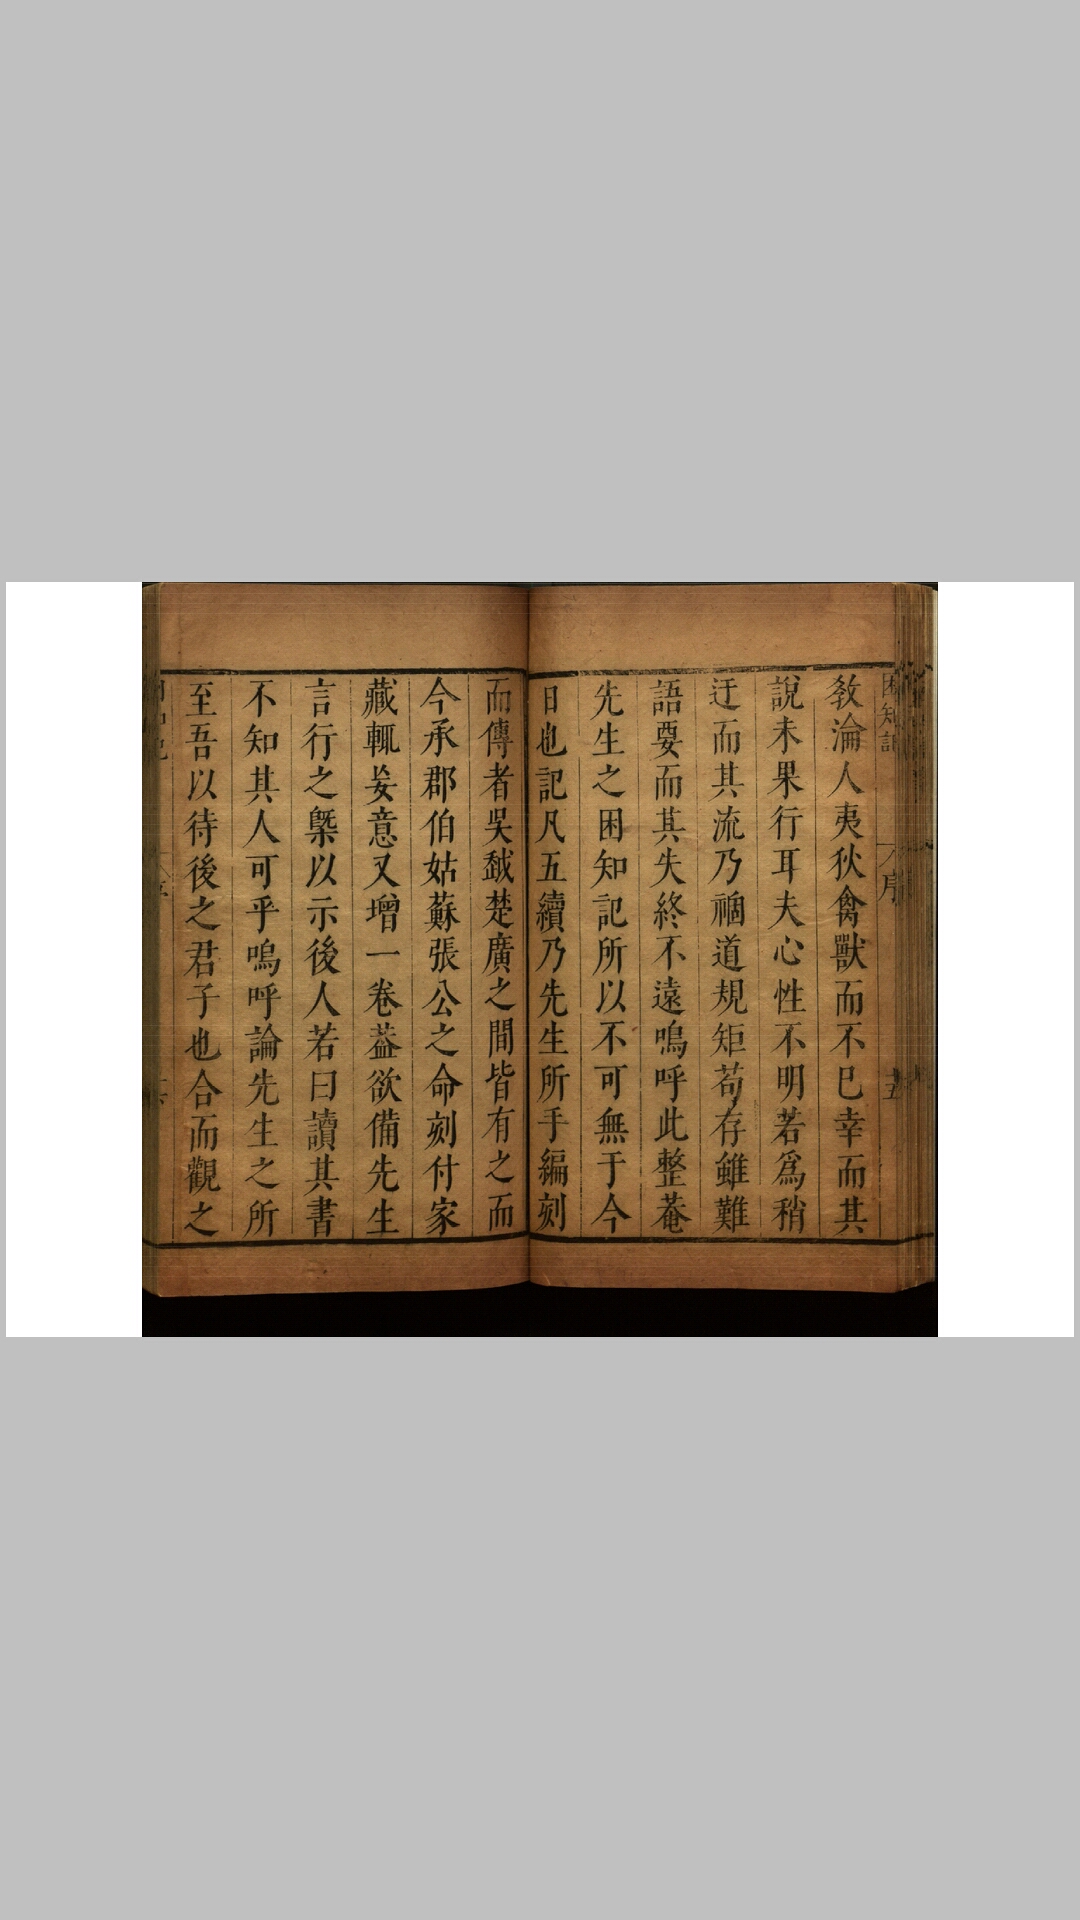 困知記
序
五
教淪人夷狄禽獸而不已幸而其
說未果行耳夫心性不明若爲稍
迂而其流乃禍道規矩苟存雖難
語要而其失終不遠嗚呼此整菴
先生之困知記所以不可無于今
日也記凡五續乃先生所手編刻
而傳者吳越楚廣之間皆有之而
今承郡伯姑蘇張公之命刻付家
藏輒妄意又增一卷葢欲備先生
言行之槩以示後人若曰讀其書
不知其人可乎嗚呼論先生之所
至吾以待後之君子也合而觀之